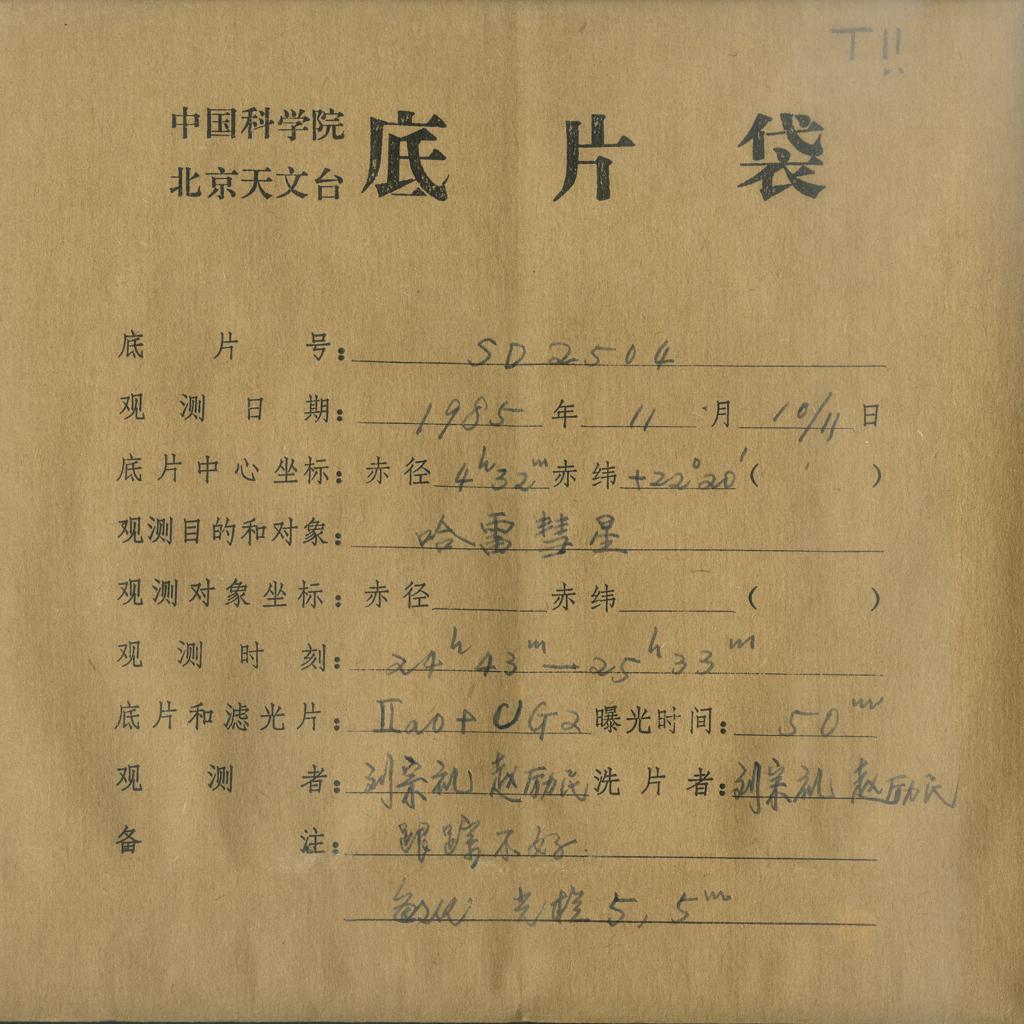 T!!
中国科学院
北京天文台
底片袋
底片号：SD2504
观测日期：1985年11月10/11日
底片中心坐标：赤径4h32m赤纬+22°20′( )
观测目的和对象：哈雷彗星
观测对象坐标：赤径 赤纬 ( )
观测时刻：24h43m—25h33m
底片和滤光片：IIaO+UG2 曝光时间：50m
观测者：刘宗礼 赵励民 洗片者：刘宗礼 赵励民
备注：跟踪不好
敏化 光栏 5, 5m